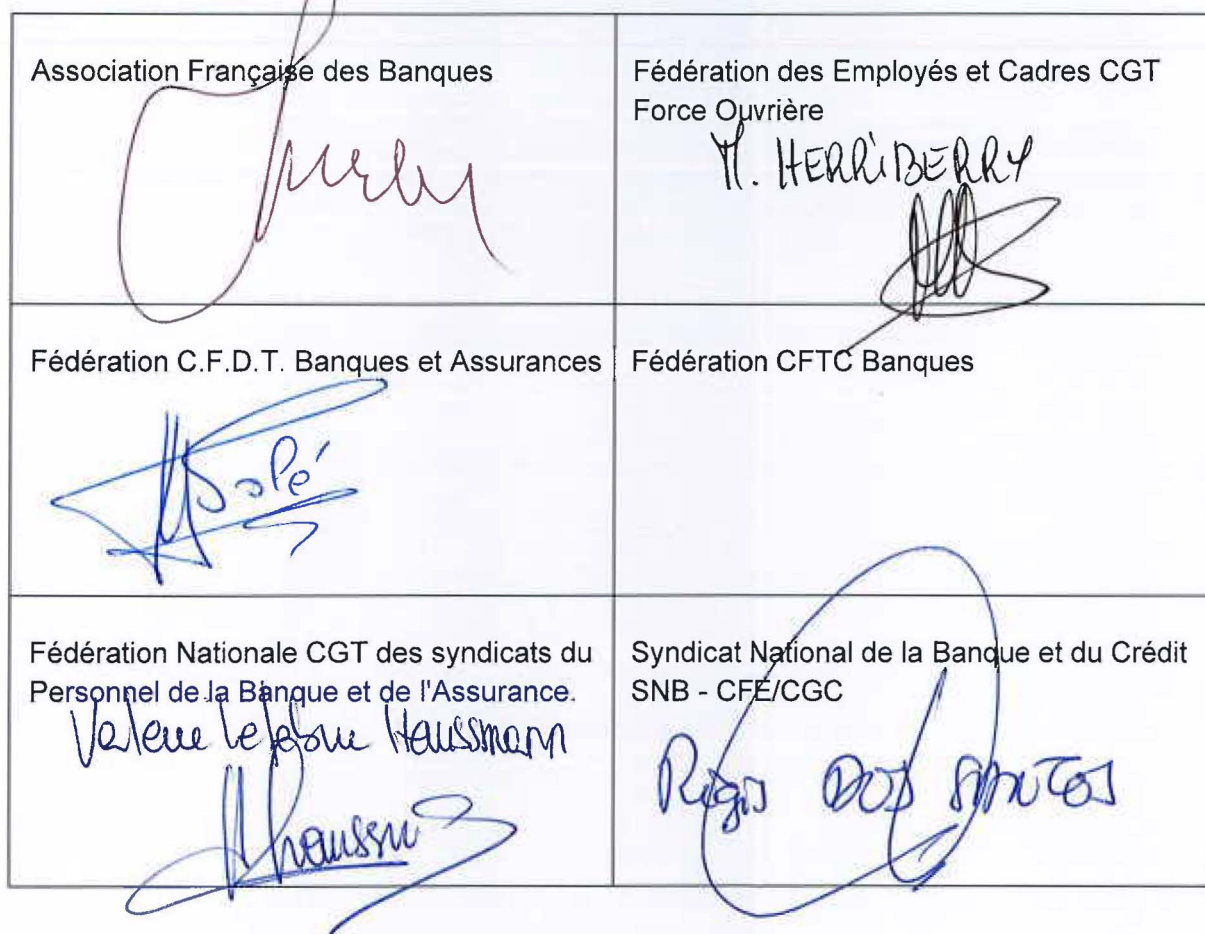 Association Française des Banques
Fédération des Employés et Cadres CGT
Force Ouvrière
M. HERRIBERRY
Fédération C.F.D.T. Banques et Assurances
Fédération CFTC Banques
Fédération Nationale CGT des syndicats du
Personnel de la Banque et de l'Assurance.
Valerie Lefebvre Haussmann
Syndicat National de la Banque et du Crédit
SNB - CFE/CGC
Régis DOS SANTOS